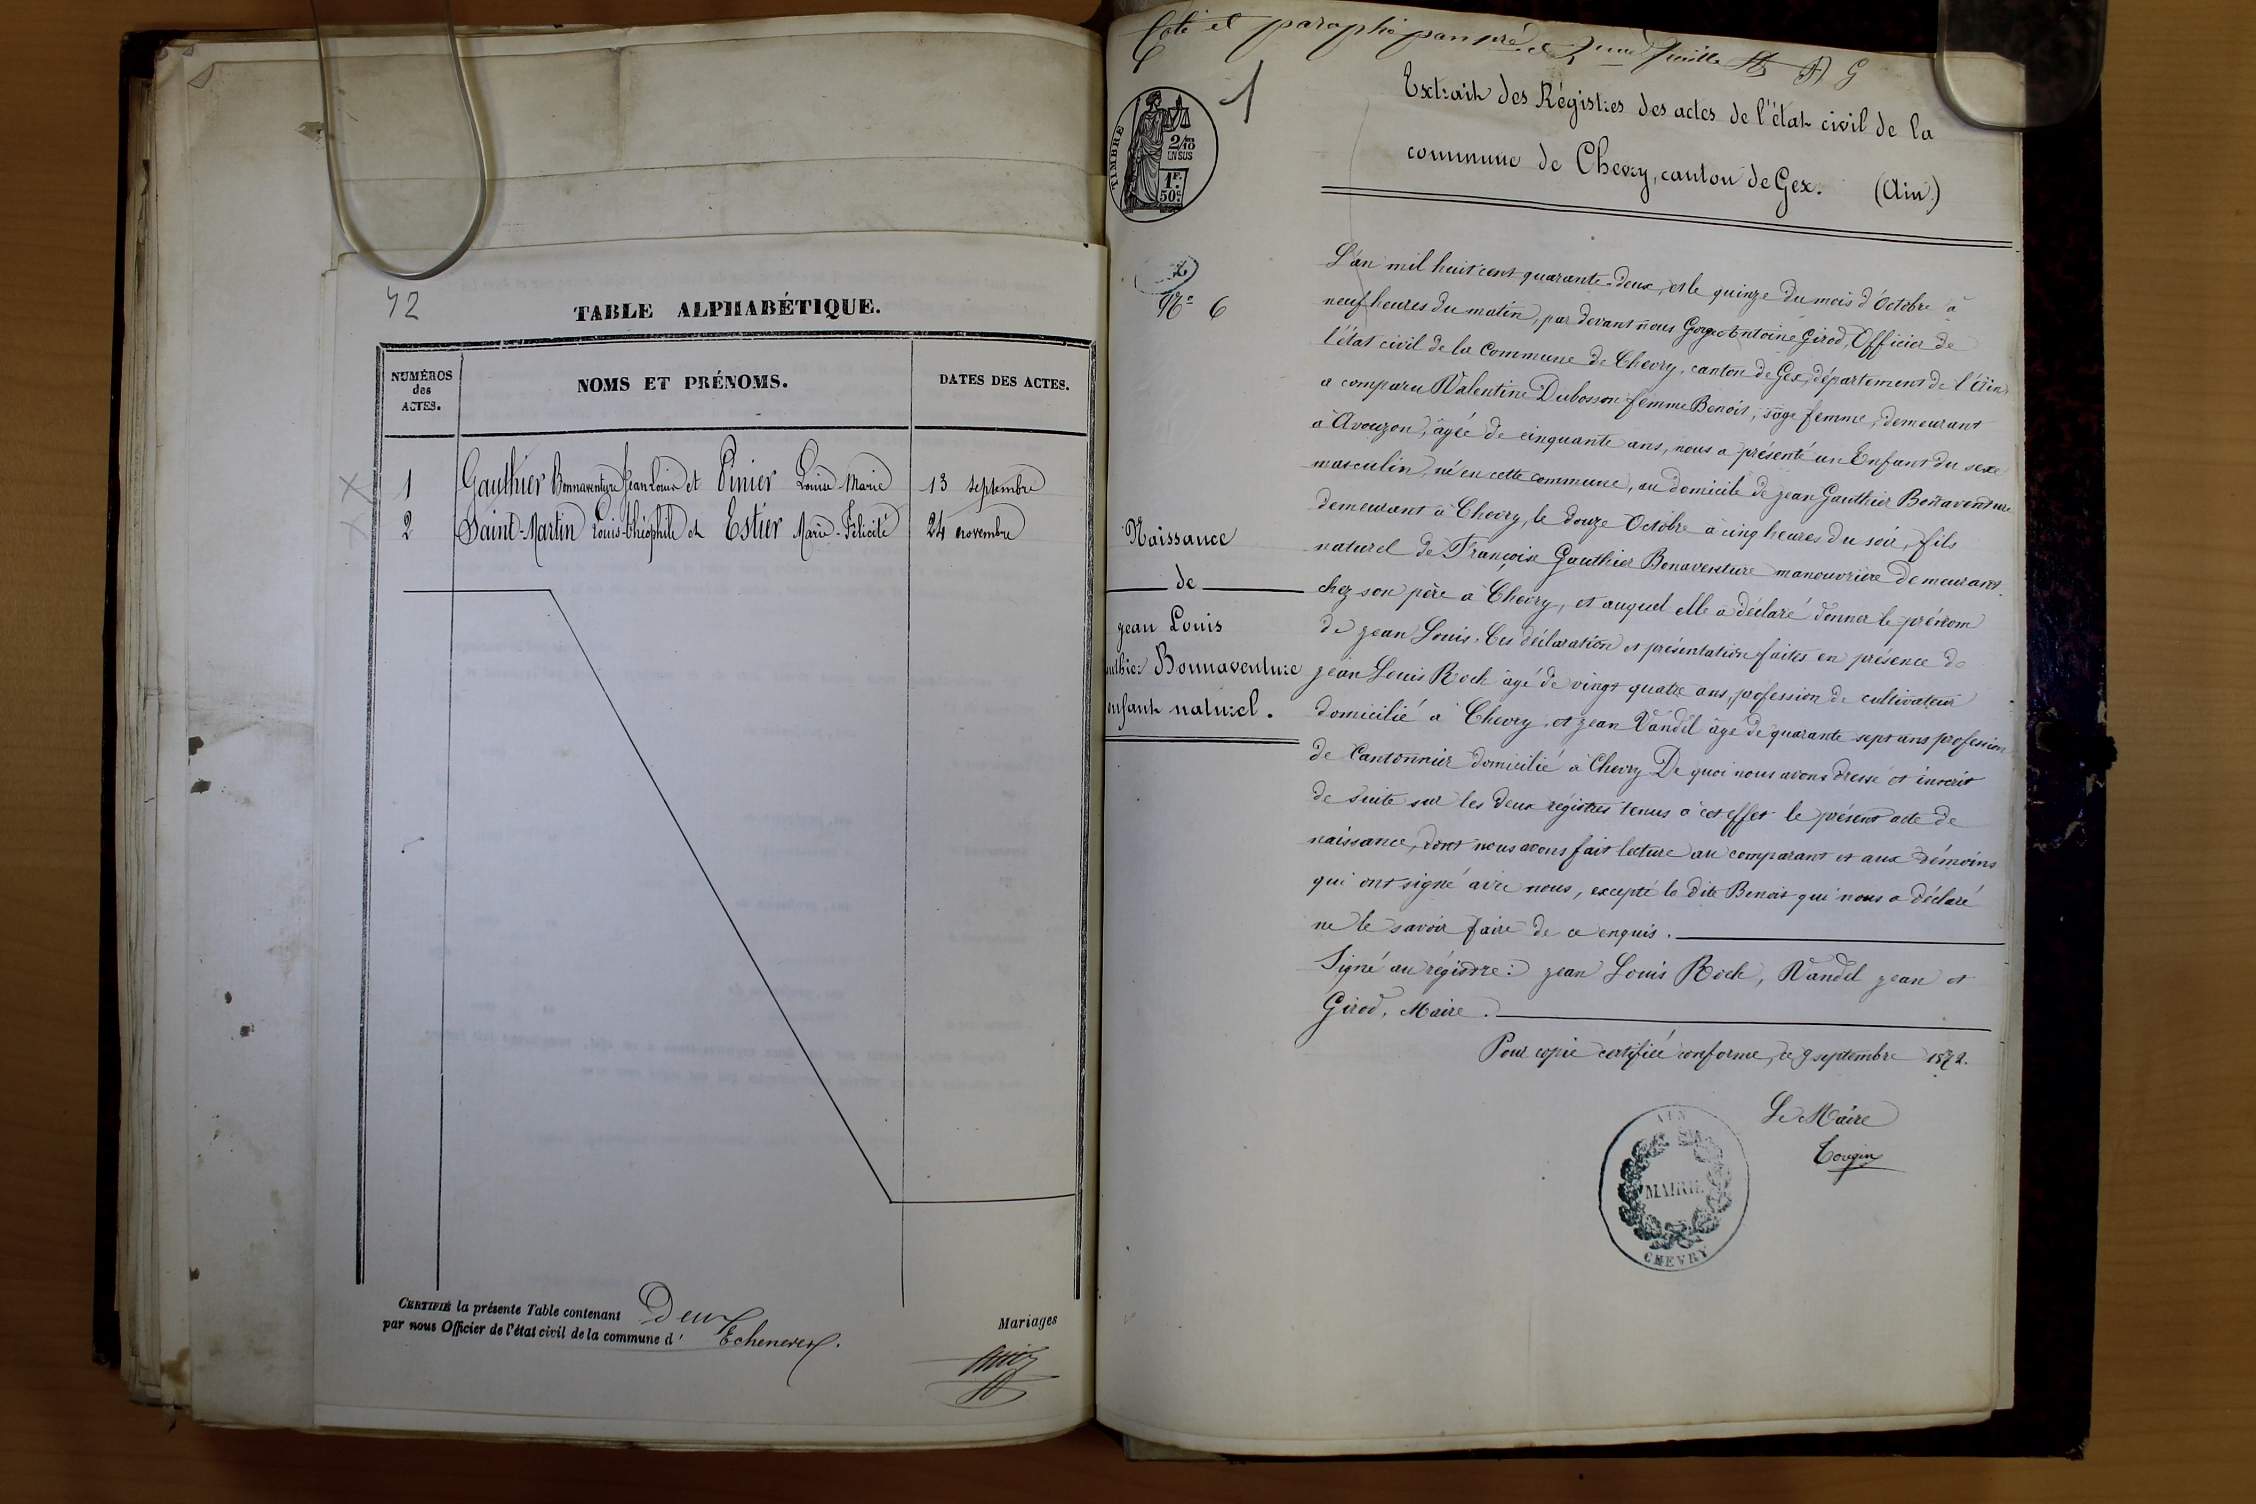 72
TABLE ALPHABÉTIQUE.
NUMÉROS
des
ACTES.
NOMS ET PRÉNOMS.
DATES DES ACTES.
1 Gauthier Bonnaventure Jean Louis et Pinier Louise Marie 13 septembre
2 Saint-Martin Louis-théophile et Estier Marie-Félicité 24 novembre
CERTIFIÉ la présente Table contenant Deux Mariages
par nous Officier de l'état civil de la commune d' Echenevex.
Coté et paraphé par
1
TIMBRE
2/10
EN SUS
1F.
50c.
Extrait des Régistres des actes de l'état civil de la
commune de Chevry, canton de Gex. (Ain)
No 6
Naissance
de
jean Louis
uthier Bonnaventure
enfant naturel.
L'an mil huit cent quarante-deux, et le quinze du mois d'Octobre à
neuf heures du matin, par devant nous George Antoine Girod, Officier de
l'état civil de la Commune de Chevry, canton de Gex, département de l'Ain
a comparu Valentine Dubosson femme Benoit, sage femme, demeurant
à Avouzon, âgée de cinquante ans, nous a présenté un Enfant du sexe
masculin, né en cette commune, au domicile de jean Gauthier Bonaventure
demeurant à Chevry, le douze Octobre à cinq heures du soir, fils
naturel de Françoise Gauthier Bonaventure manouvrière demeurant
chez son père à Chevry, et auquel elle a déclaré donner le prénom
de jean Louis. Ces déclaration et présentation faites en présence de
jean Louis Roch âgé de vingt quatre ans, profession de cultivateur
domicilié à Chevry, et jean Vandel âgé de quarante sept ans profession
de Cantonnier domicilié à Chevry De quoi nous avons dressé et inscrit
de suite sur les deux régistres tenus à cet effet le présent acte de
naissance, dont nous avons fait lecture au comparant et aux témoins
qui ont signé avec nous, excepté la dite Benoit qui nous a déclaré
ne le savoir faire de ce enquis.
Signé au régistre: jean Louis Roch, Vandel jean et
Girod, Maire.
Pour copie certifiée conforme, ce 9 septembre 1872.
Le Maire
AIN
MAIRIE
CHEVRY